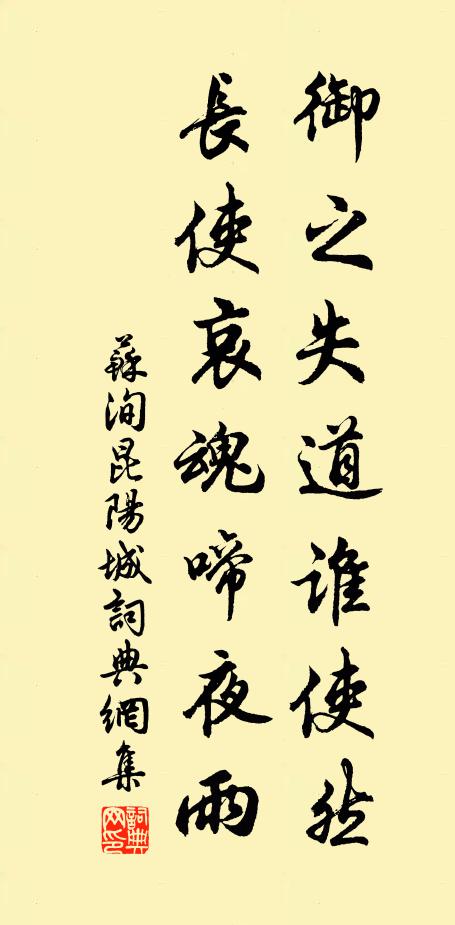 御之失道誰使然
長使哀魂啼夜雨
蘇洵昆陽城詞典網集
詞典
网印